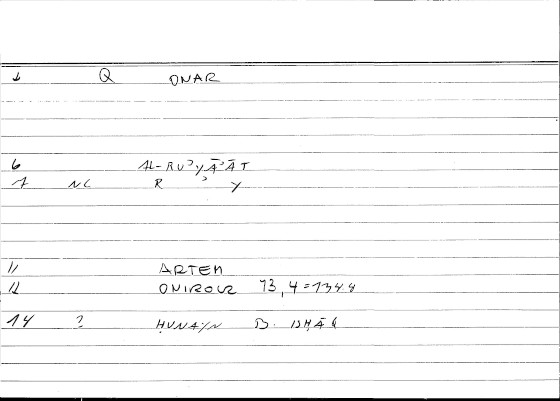 Q ONAR
6 AL-RUʾYĀʾĀT
7 NC R ʾ Y
11 ARTEM
12 ONIROCR 13,4=134.8
14 ? ḤUNAYN B. ISḤĀQ